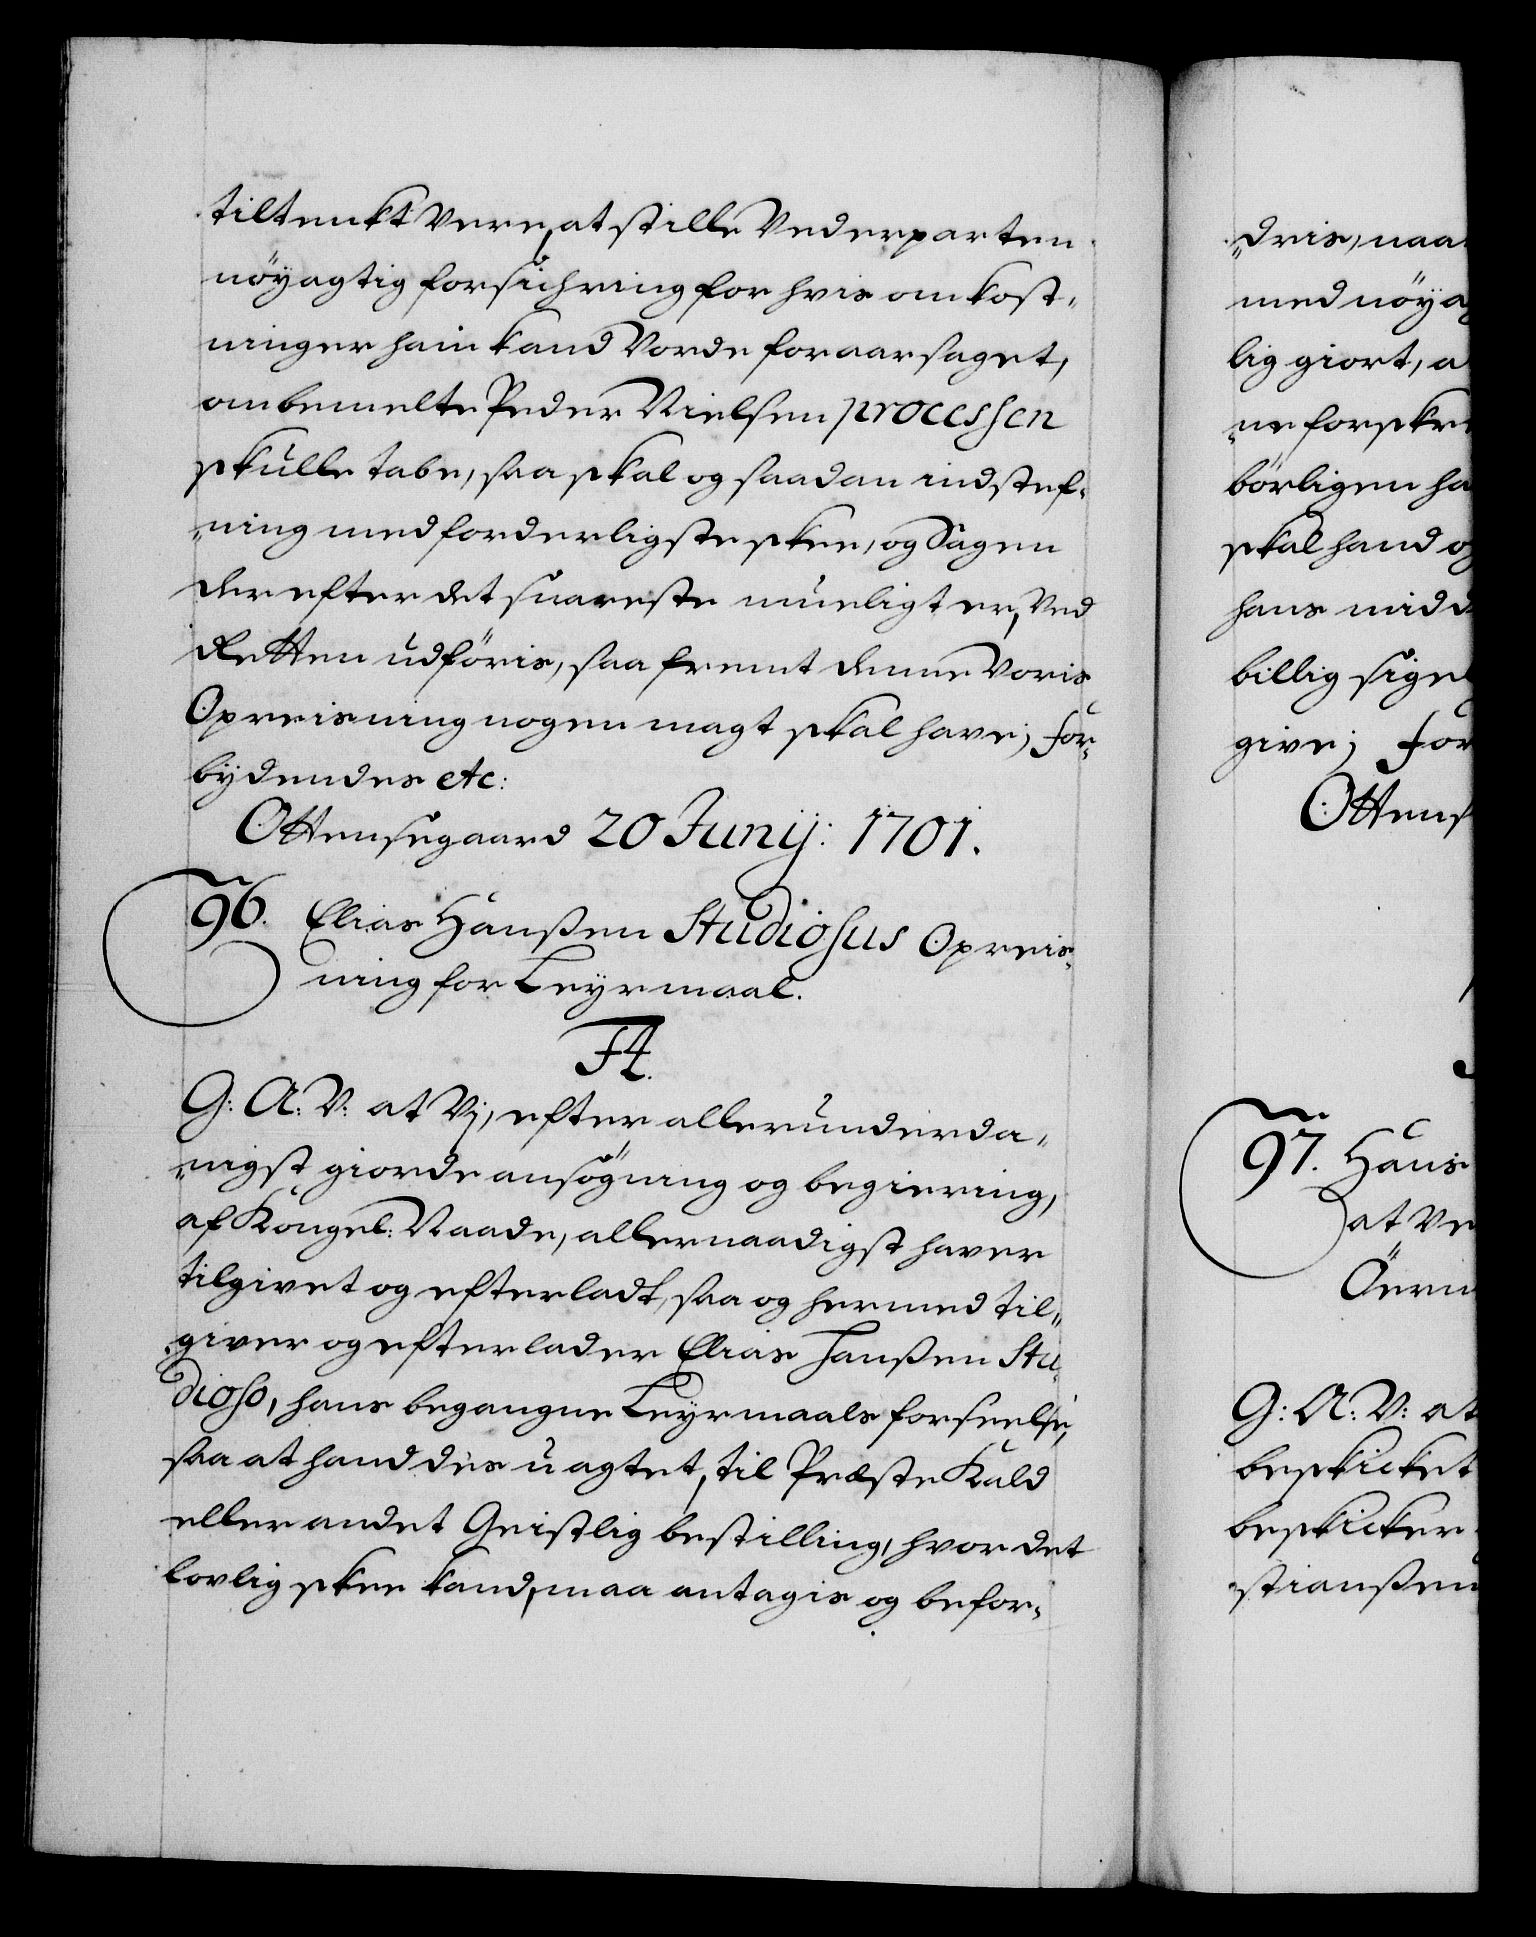 tiltenkt vere, at stille Vederparten
nöyagtig forsichring for hvis omkost-
ninger hañ kand vorde foraarsaget,
om bemelte Peder Nielsen processen
skulle tabe, saa skal og saadan indstef-
ning med forderligste skee, og Sagen
der efter det snareste mueligt er, ved
Retten udföris, saa fremt denne Voris
Opreisning nogen magt skal have; For-
bydendes etc:
Ottensegaard 20 Junij: 1701.
96. Elias Hanßen Studiosus Opreis-
ning for Leyermaal.
F4.
G: A: V: at Vj, efter allerunderda-
nigst giorde ansögning og begiering,
af Kongel: Naade, allernaadigst haver
tilgivet og efterladt, saa og hermed til-
giver og efterlader Elias Hanßen Stu-
dioso, hans begangne Leyermaals forseelse,
saa at hand des uagtet, til Præste Kald
eller andet Geistlig bestilling, hvor det
lovlig skee kand, maa antagis og befor-
dris, naa
med nöyag
lig giort, a
ne forskre
börligen ha
skal hand og
hans midd
billig sigel
give; For
Ottens
97. Hans
at ve
Öern
G: A: V: at
beskicket
beskicker
stianßen